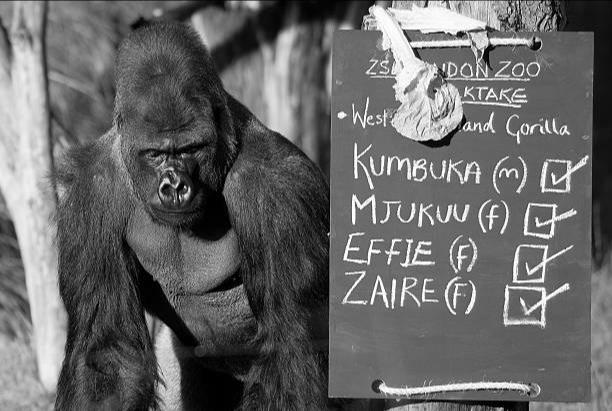 ZS NDON ZOO
KTAKE
• West and Gorilla
KUMBUKA (m)
MJUKUU (f)
EFFIE (f)
ZAIRE (F)